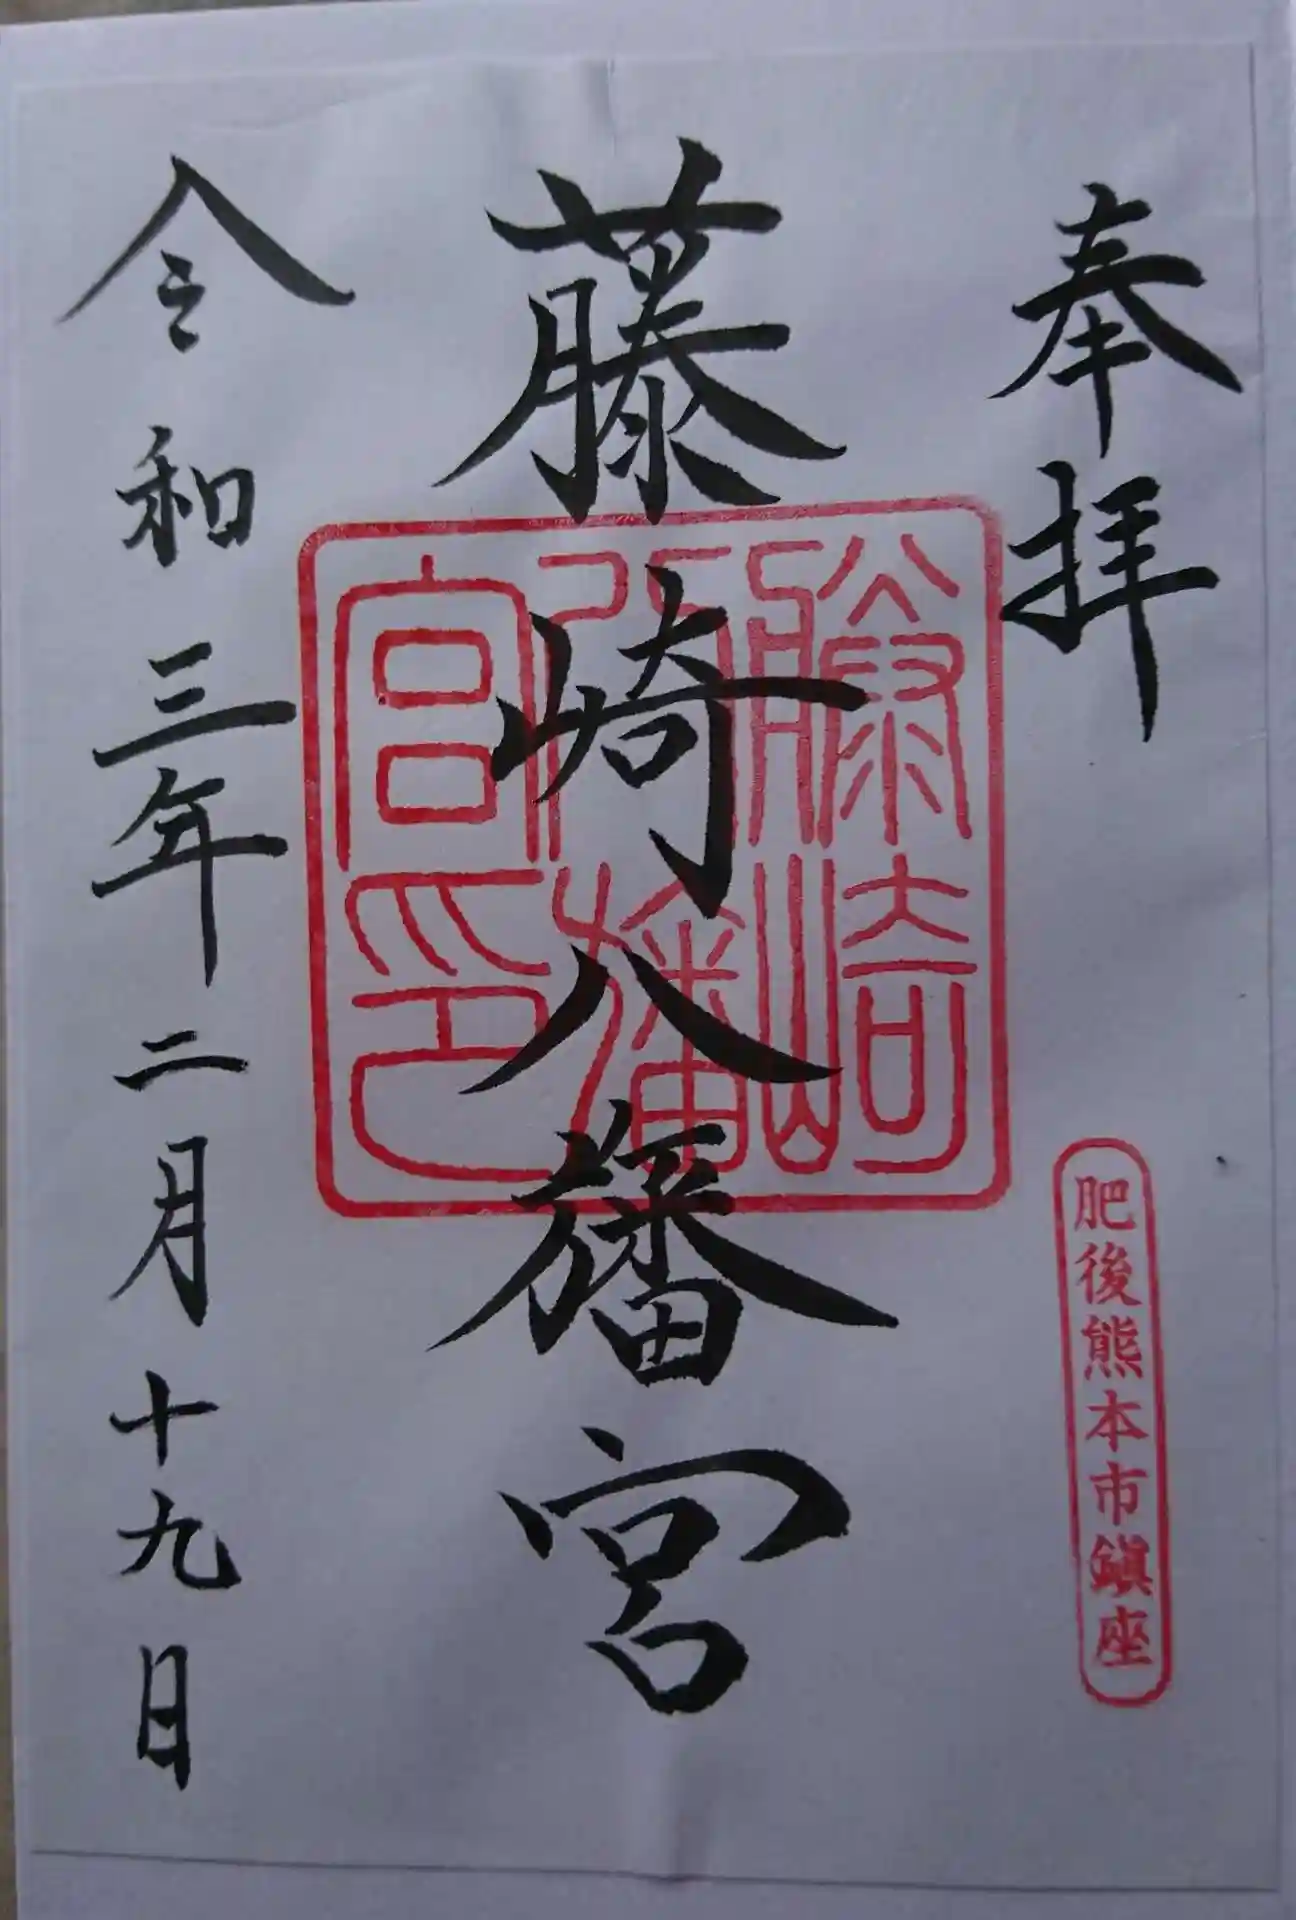 奉拝
肥後熊本市鎮座
藤崎八旛宮
藤崎
八幡
宮印
令和三年二月十九日